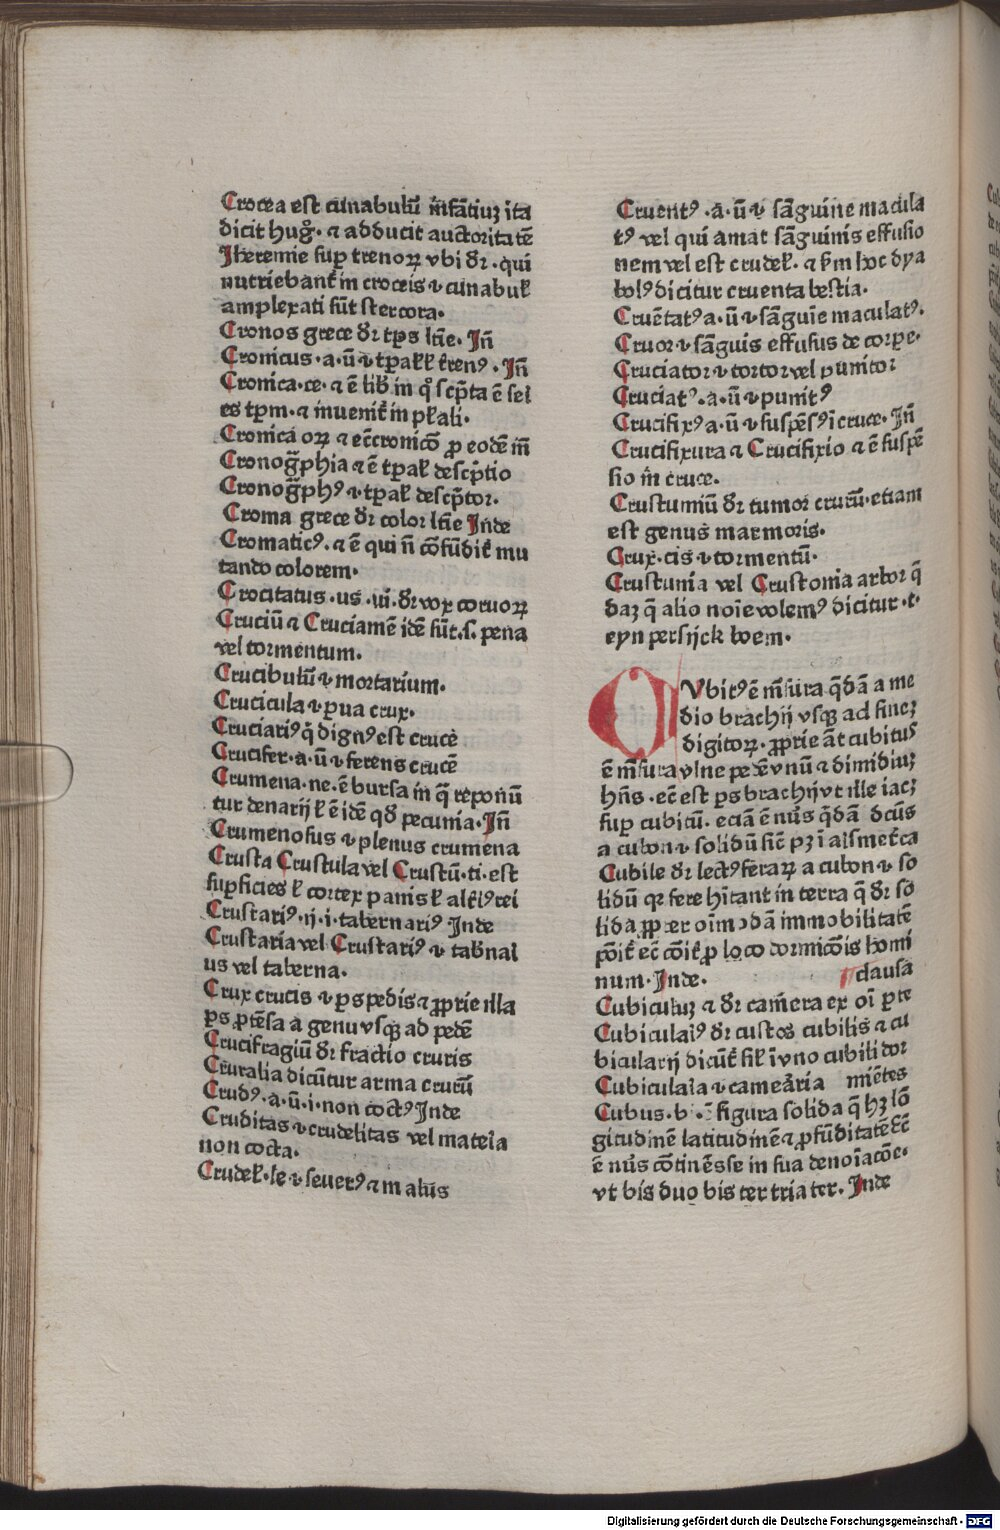 Crocea est cunabulū īnfātiuꝫ ita
dicit hug̊. ⁊ adducit auctoritatē
Jheremie sup̱ trenoꝝ vbi dr̄. qui
nutriebant̄ in croceis ⁊ cunabul̓
amplexati sūt stercora.
Cronos grece dr̄ tp̄s latīe. Jn̄
Cronicus .a. ū ⁊ tp̱al̓
Cronica .ce. ⁊ ē lib̄ in q̊ scp̄ta ē sel
es tp̱m. ⁊ inuenit̄ in pl̓ali.
Cronica oꝝ ⁊ ec̄ cronicō ꝓ eodē īn
Cronogp̄hia ⁊ ē tp̱al̓ descp̄tio
Cronogp̄hꝰ ⁊ tp̱al̓ descp̄tor.
Croma grece dr̄ color latīe Jnde
Cromaticꝰ. ⁊ ē qui n̄ cōfūdit̄ mu
tando colorem.
Crocitatus .us .ui. dr̄ vox coruoꝝ
Cruciū ⁊ Cruciamē idē sūt .s. pena
vel tormentum.
Crucibulū ⁊ mortarium.
Crucicula ⁊ ꝑua crux.
Cruciariꝰ q̄ dignꝰ est cruce
Crucifer .a. ū ⁊ ferens crucē
Crumena .ne. ē bursa in q̄ reponū
tur denarij l̓ ē idē qd̓ pecunia. Jn̄
Crumenosus ⁊ plenus crumena
Crusta Crustula vel Crustū .ti. est
sup̱ficies l̓ cortex panis l̓ altīꝰ rei
Crustariꝰ .ij. i. tabernariꝰ Jnde
Crustaria vel Crustariꝰ ⁊ tab̄nal
us vel taberna.
Crux crucis ⁊ ꝑs pedis ⁊ ꝓprie illa
ꝑs ꝓtēsa a genu vsqꝫ ad pedē
Crucifragiū dr̄ fractio cruris
Cruralia dicūtur arma crurū
Crudꝰ .a. ū. i. non coctꝰ Jnde
Cruditas ⁊ crudelitas vel mateīa
non cocta.
Crudel̓. le ⁊ seuerꝰ ⁊ malus
Cruentꝰ .a. ū ⁊ sāguine macula
tꝰ vel qui amat sāguinis effusio
nem vel est crudel̓. ⁊ km̄ hoc dya
bolꝰ dicitur cruenta bestia.
Cruētatꝰ a. ū ⁊ sāguīe maculatꝰ.
Cruor ⁊ sāguis effusus de corꝑe.
Cruciator ⁊ tortor vel punitor
Cruciatꝰ .a. ū ⁊ punitꝰ
Crucifixꝰ a. ū ⁊ suspēsꝰ ī cruce. Jn̄
Crucifixura ⁊ Crucifixio ⁊ ē suspē
sio in cruce.
Crustumiū dr̄ tumor crurū. etiam
est genus marmoris.
Crux .cis ⁊ tormentū.
Crustunia vel Crustonia arbor q̄
daꝫ q̄ alio noīe volemꝰ dicitur .t.
eyn persijck boem.
Vbitꝰ ē m̄sura q̄dā a me
dio brachij vsqꝫ ad fineꝫ
digitoꝝ. ꝓprie āt cubitus
ē m̄sura vlne pedē vnū ⁊ dimidiuꝫ
hn̄s. ec̄ est ꝑs brachij vt ille iacꝫ
sup̱ cubitū. eciā ē nūs q̄dā dcūs
a cubon ⁊ solidū sic̄ pꝫ ī aismet̄ca
Cubile dr̄ lectꝰ feraꝝ a cubon ⁊ so
lidū qꝛ fere hītant in terra q̄ dr̄ so
lida ꝓpter oīmodā immobilitatē
pōit̄ ec̄ cōit̄ ꝓ loco dormicōis homi
num. Jnde. ¶ clausa
Cubiculuꝫ ⁊ dr̄ cam̄era ex oī ꝑte
Cubiculaīꝰ dr̄ custos cubilis ⁊ cu
bicularij dicūt̄ sil̓ ī vno cubili dor
Cubiculaīa ⁊ camerāria miētes
Cubus .bi. ē figura solida q̄ hꝫ lō
gitudinē latitudinē ⁊ ꝓfūditatē ec̄
ē nūs cōtinēs se in sua denoīacōe.
vt bis duo bis ter tria ter. Jnde
Digitalisierung gefördert durch die Deutsche Forschungsgemeinschaft - DFG